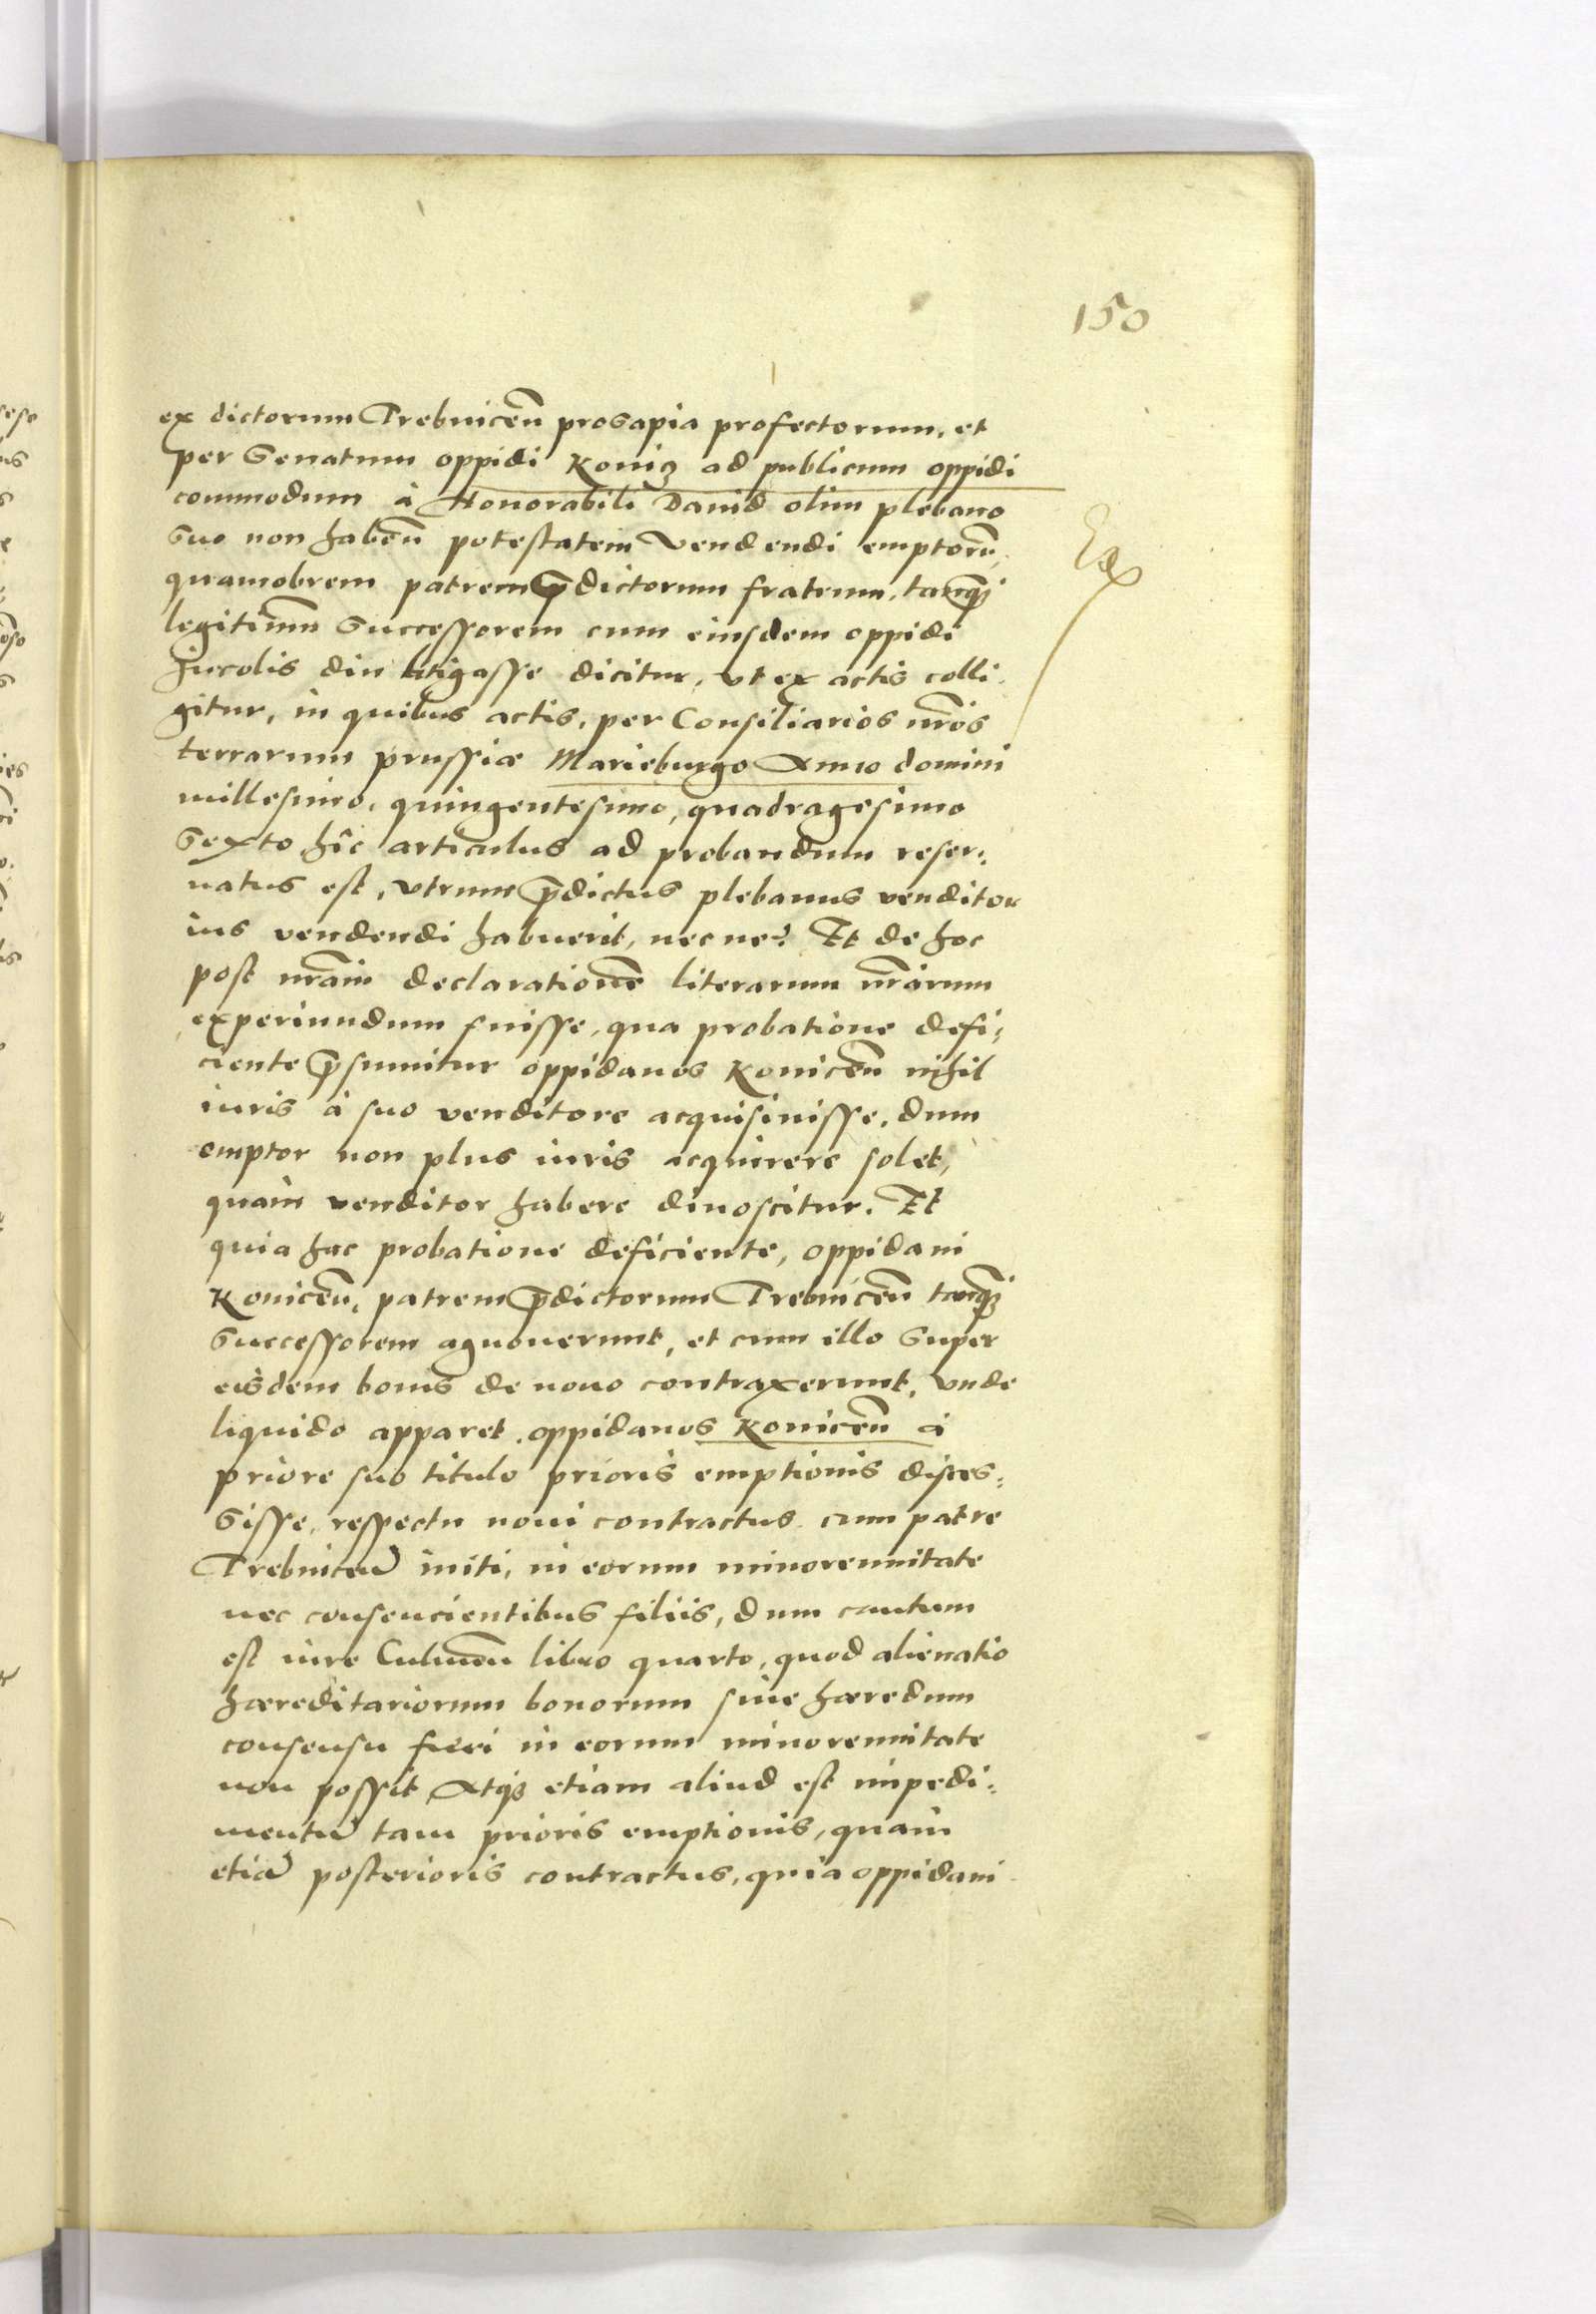 150
ex dictorum Trebnicen̄ prosapia profectorum, et
per Senatum oppidi Konicz ad publicum oppidi
commodum à Honorabili Dauid olim plebano
suo non haben̄ potestatem vendendi emptorū,
quamobrem patrem p̄dictorum fratrum, tanq̄
legitimū successorem cum eiusdem oppidi
Incolis diu litigasse dicitur, vt ex actis colli-
gitur, in quibus actis, per Consiliarios nr̄os
terrarum prussiæ Marieburgo Anno domini
millesimo, quingentesimo, quadragesimo
Sexto hic articulus ad probandum reser-
uatus est, vtrum p̄dictus plebanus venditor
ius vendendi habuerit, necne? Et de hoc
post nr̄am declarationē literarum nr̄arum
experiundum fuisse, qua probatione defi-
ciente p̄sumitur oppidanos Konicen̄ nihil
iuris à suo venditore acquisiuisse, dum
emptor non plus iuris acquirere solet,
quàm venditor habere dinoscitur. Et
quia hac probatione deficiente, oppidani
Konicen̄, patrem p̄dictorum Trebnicen̄ tanq̄
successorem agnouerunt, et cum illo super
eisdem bonis de nouo contraxerunt, vnde
liquido apparet oppidanos Konicen̄ à
priore suo titulo prioris emptionis disces-
sisse, respectu noui contractus cum patre
Trebnicen̄ initi, in eorum minorennitate
nec consencientibus filiis, dum cautum
est iure Culmen̄ libro quarto, quod alienatio
hæreditariorum bonorum sine hæredum
consensu fieri in eorum minorennitate
non possit Atq3 etiam aliud est impedi-
mentū tam prioris emptionis, quàm
etiā posterioris contractus, quia oppidani